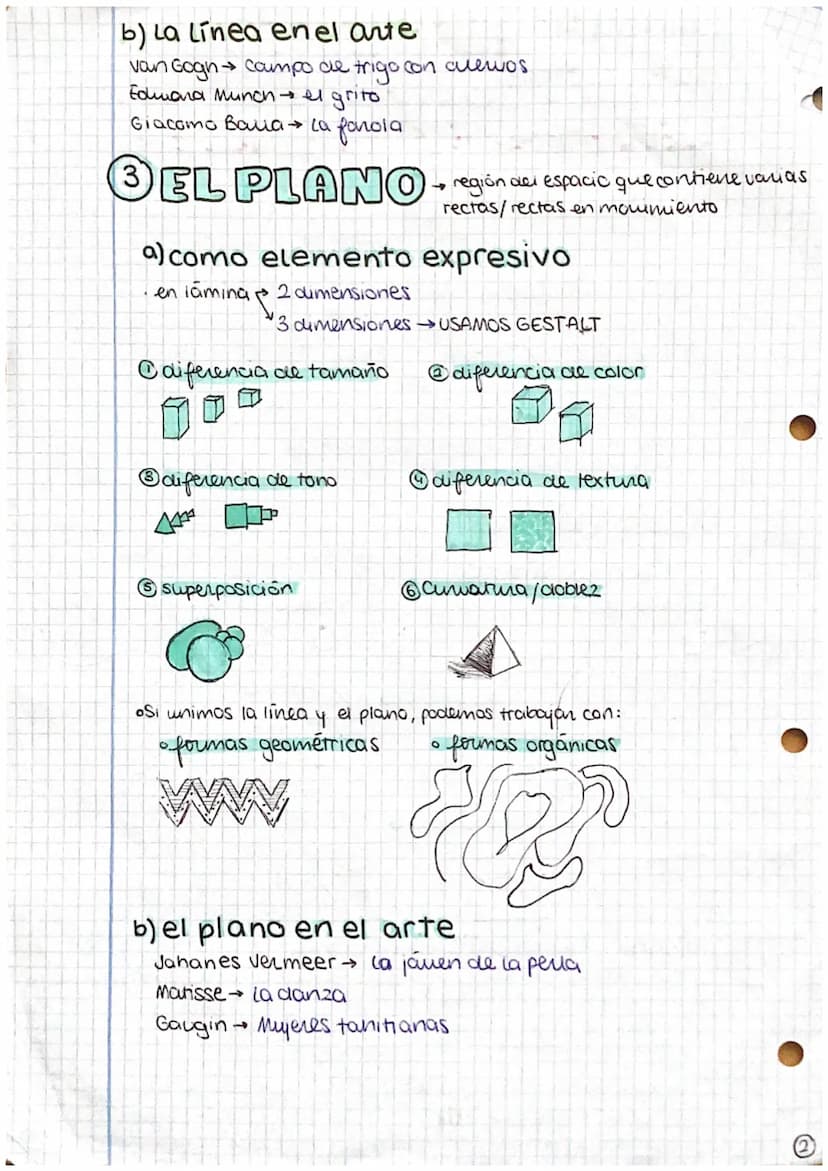 b) La Línea en el arte
Van Gogh → Campo de trigo con cuervos
Edward Munch → el grito
Giacomo Balla → La farola
3 EL PLANO → región del espacio que contiene varias
rectas/rectas en movimiento
a) como elemento expresivo
· en lámina → 2 dimensiones
↘ 3 dimensiones → USAMOS GESTALT
① diferencia de tamaño ② diferencia de color
③ diferencia de tono ④ diferencia de textura
⑤ superposición ⑥ Curvatura/doblez
•Si unimos la línea y el plano, podemos trabajar con:
• formas geométricas • formas orgánicas
b) el plano en el arte
Johanes Vermeer → La jóven de la perla
Matisse → La danza
Gaugin → Mujeres tahitianas
2